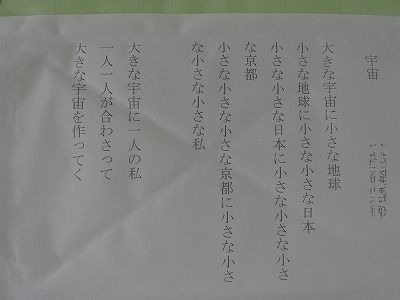 宇宙
大きな宇宙に小さな地球
小さな地球に小さな小さな日本
小さな小さな日本に小さな小さな小さ
な京都
小さな小さな小さな京都に小さな小さ
な小さな小さな私
大きな宇宙に一人の私
一人一人が合わさって
大きな宇宙を作ってく